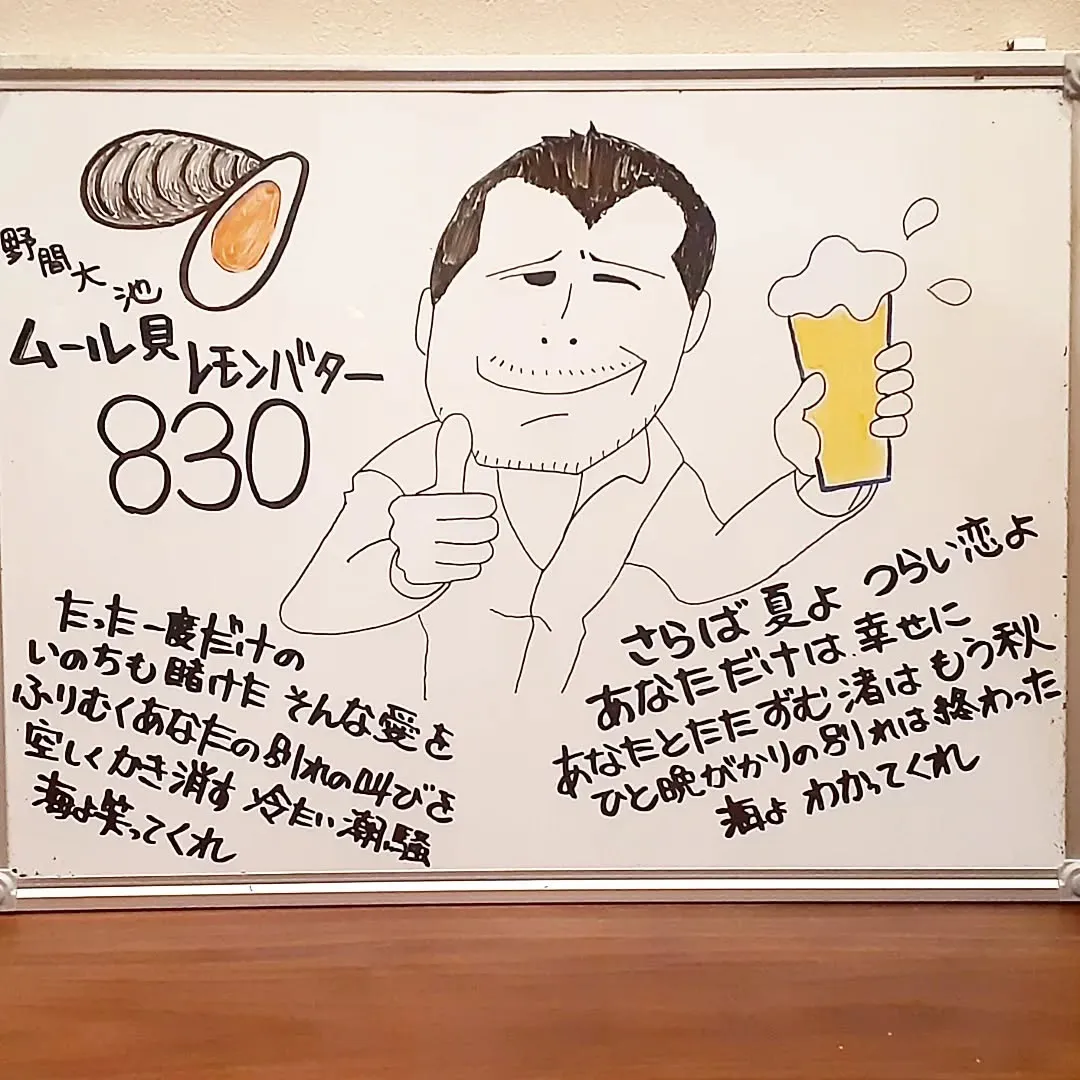 野間大池
ムール貝
レモンバター
830
たった一度だけの
いのちも賭けた そんな愛を
ふりむくあなたの別れの叫びを
空しくかき消す 冷たい潮騒
海よ笑ってくれ
さらば夏よ つらい恋よ
あなただけは幸せに
あなたとたたずむ渚はもう秋
ひと晩がかりの別れは終わった
海よ わかってくれ